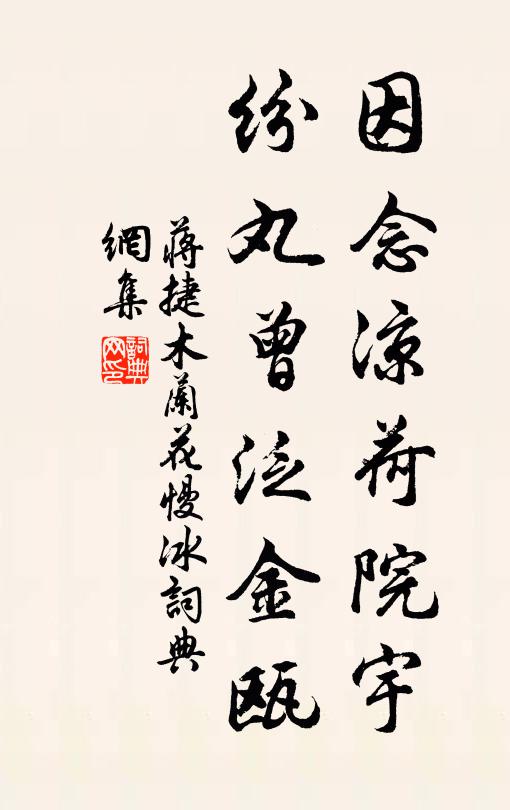 因念涼荷院宇
紛丸曾泛金甌
蔣捷木蘭花慢冰詞典
網集
詞典網印